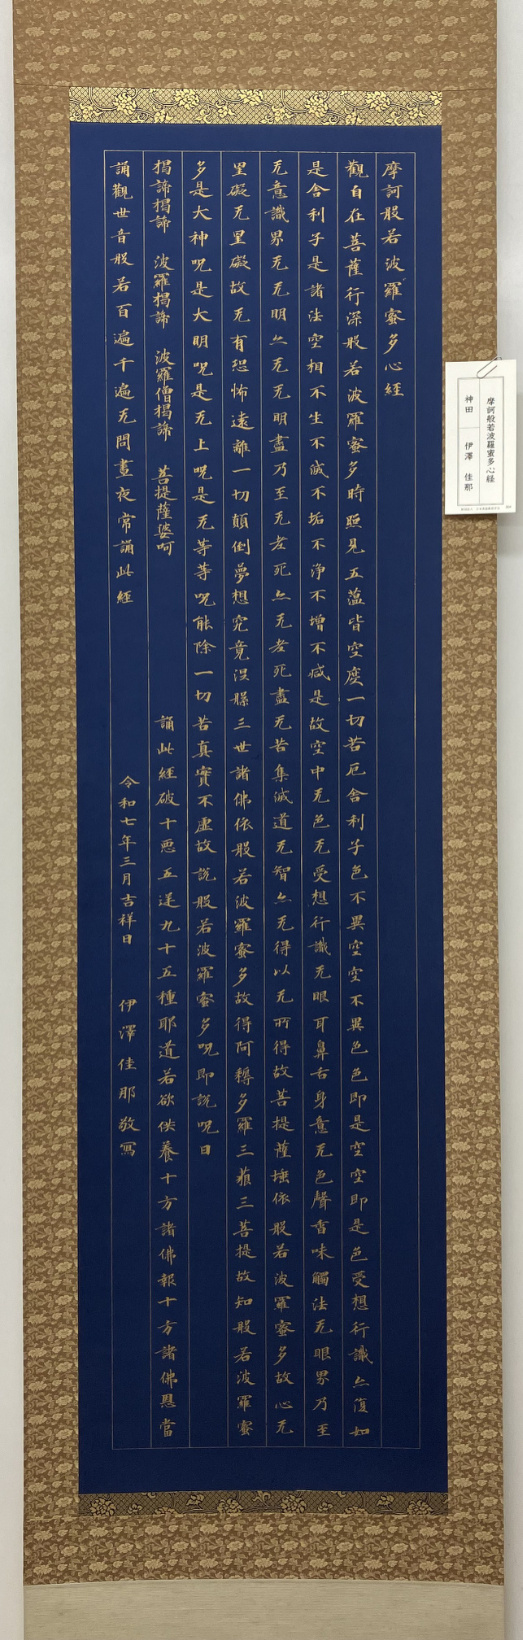 摩訶般若波羅蜜多心経
觀自在菩薩行深般若波羅蜜多時照見五蕴皆空度一切苦厄舍利子色不異空空不異色色即是空空即是色受想行識亦復如
是舍利子是諸法空相不生不滅不垢不浄不增不减是故空中无色无受想行識无眼耳鼻舌身意无色聲香味觸法无眼界乃至
无意識界无无明亦无无明盡乃至无老死亦无老死盡无苦集滅道无智亦无得以无所得故菩提薩埵依般若波羅蜜多故心无
罣礙无罣礙故无有恐怖遠離一切顛倒夢想究竟涅槃三世諸佛依般若波羅蜜多故得阿耨多羅三藐三菩提故知般若波羅蜜
多是大神呪是大明呪是无上呪是无等等呪能除一切苦真實不虚故説般若波羅蜜多呪即説呪曰
揭諦揭諦 波羅揭諦 波羅僧揭諦 菩提薩婆呵 誦此經破十惡五逆九十五種耶道若欲供養十方諸佛報十方諸佛恩當
誦觀世音般若百遍千遍无問晝夜常誦此經 令和七年三月吉祥日 伊澤佳那敬寫
摩訶般若波羅蜜多心経
神田 伊澤 佳那